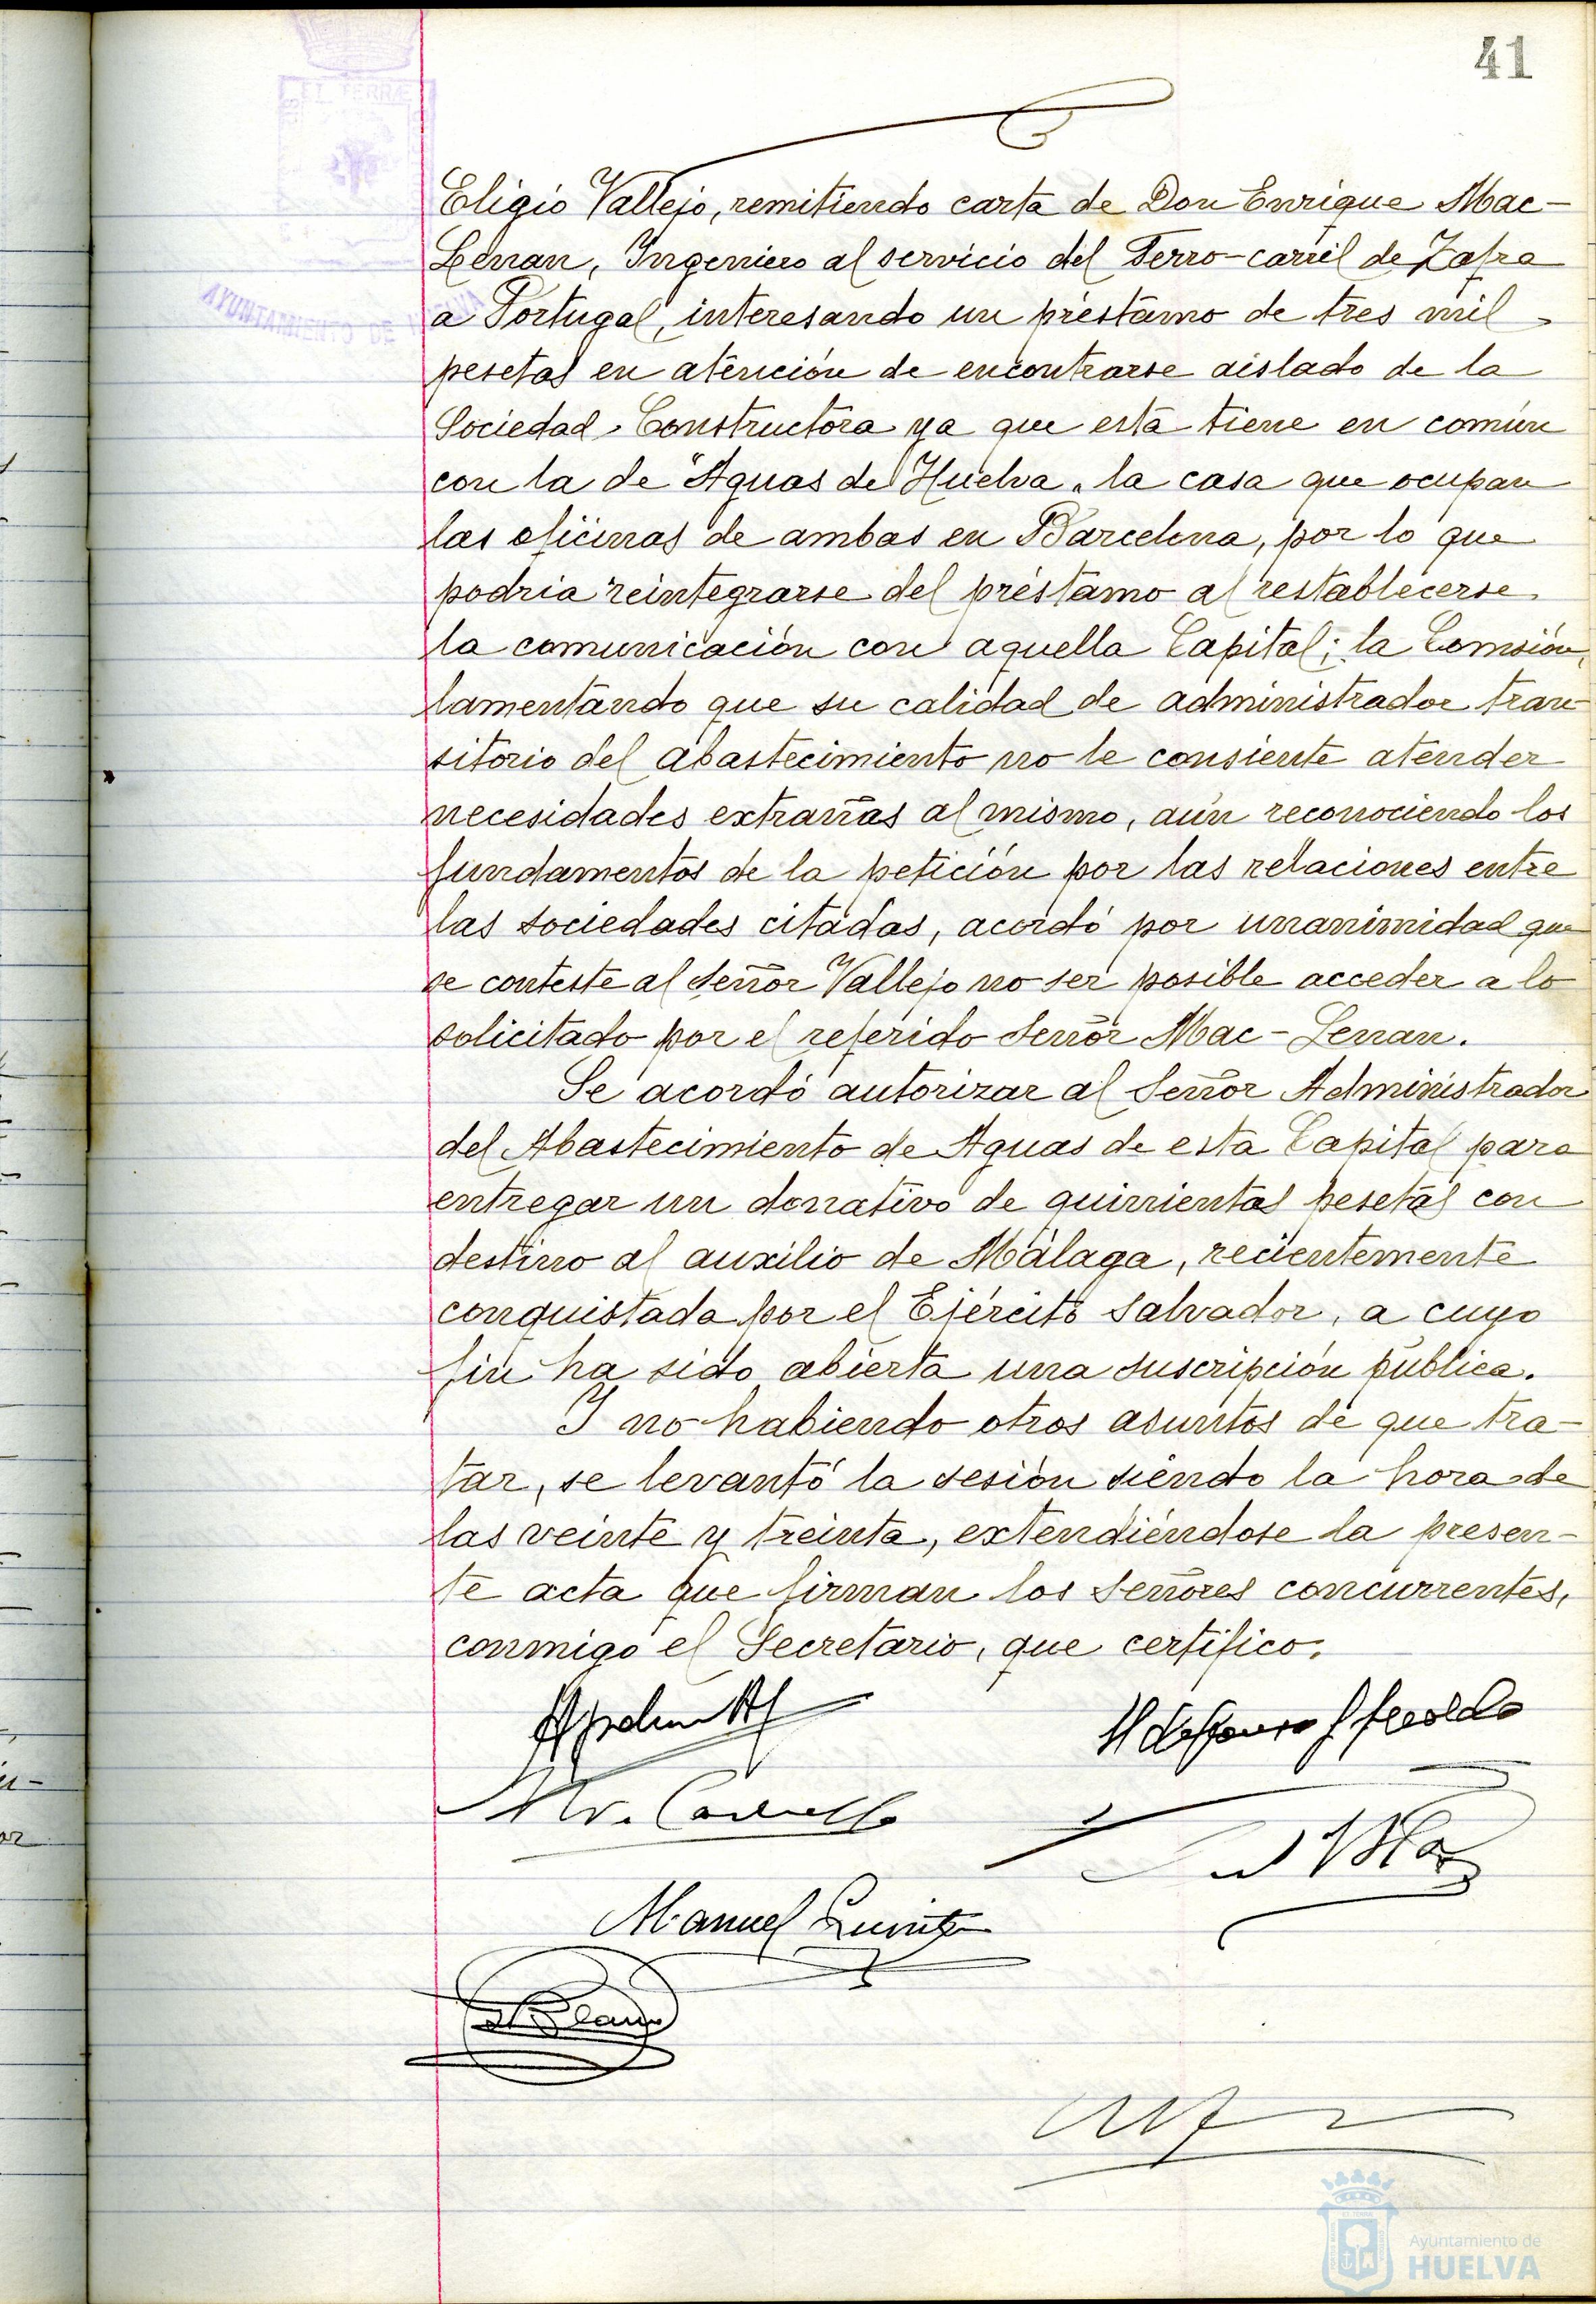 41
Eligio Vallejo, remitiendo carta de Don Enrique Mac-
Lenan, Ingeniero al servicio del Ferro-carril de Zafra
a Portugal, interesando un préstamo de tres mil
pesetas en atención de encontrarse aislado de la
Sociedad Constructora ya que esta tiene en común
con la de "Aguas de Huelva" la casa que ocupan
las oficinas de ambas en Barcelona, por lo que
podria reintegrarse del préstamo al restablecerse
la comunicación con aquella Capital; la Comisión,
lamentando que su calidad de administrador tran-
sitorio del abastecimiento no le consiente atender
necesidades extrañas al mismo, aún reconociendo los
fundamentos de la petición por las relaciones entre
las sociedades citadas, acordó por unanimidad que
se conteste al Señor Vallejo no ser posible acceder a lo
solicitado por el referido Señor Mac-Lenan.
Se acordó autorizar al Señor Administrador
del Abastecimiento de Aguas de esta Capital para
entregar un donativo de quinientas pesetas con
destino al auxilio de Málaga, recientemente
conquistada por el Ejército Salvador, a cuyo
fin ha sido abierta una suscripción pública.
Y no habiendo otros asuntos de que tra-
tar, se levantó la sesión siendo la hora de
las veinte y treinta, extendiéndose la presen-
te acta que firman los Señores concurrentes,
conmigo el Secretario, que certifico.
Manuel
AYUNTAMIENTO DE HUELVA
Ayuntamiento de
HUELVA